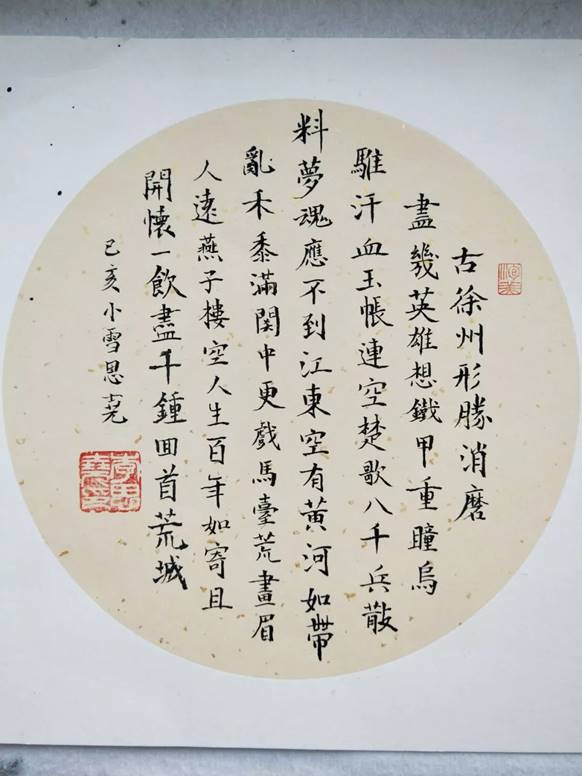 古徐州形勝消磨
盡幾英雄想鐵甲重瞳烏
騅汗血玉帳連空楚歌八千兵散
料夢魂應不到江東空有黃河如帶
亂禾黍滿関中更戲馬臺荒畫眉
人遠燕子樓空人生百年如寄且
開懷一飲盡千鍾囬首荒城
己亥小雪思堯